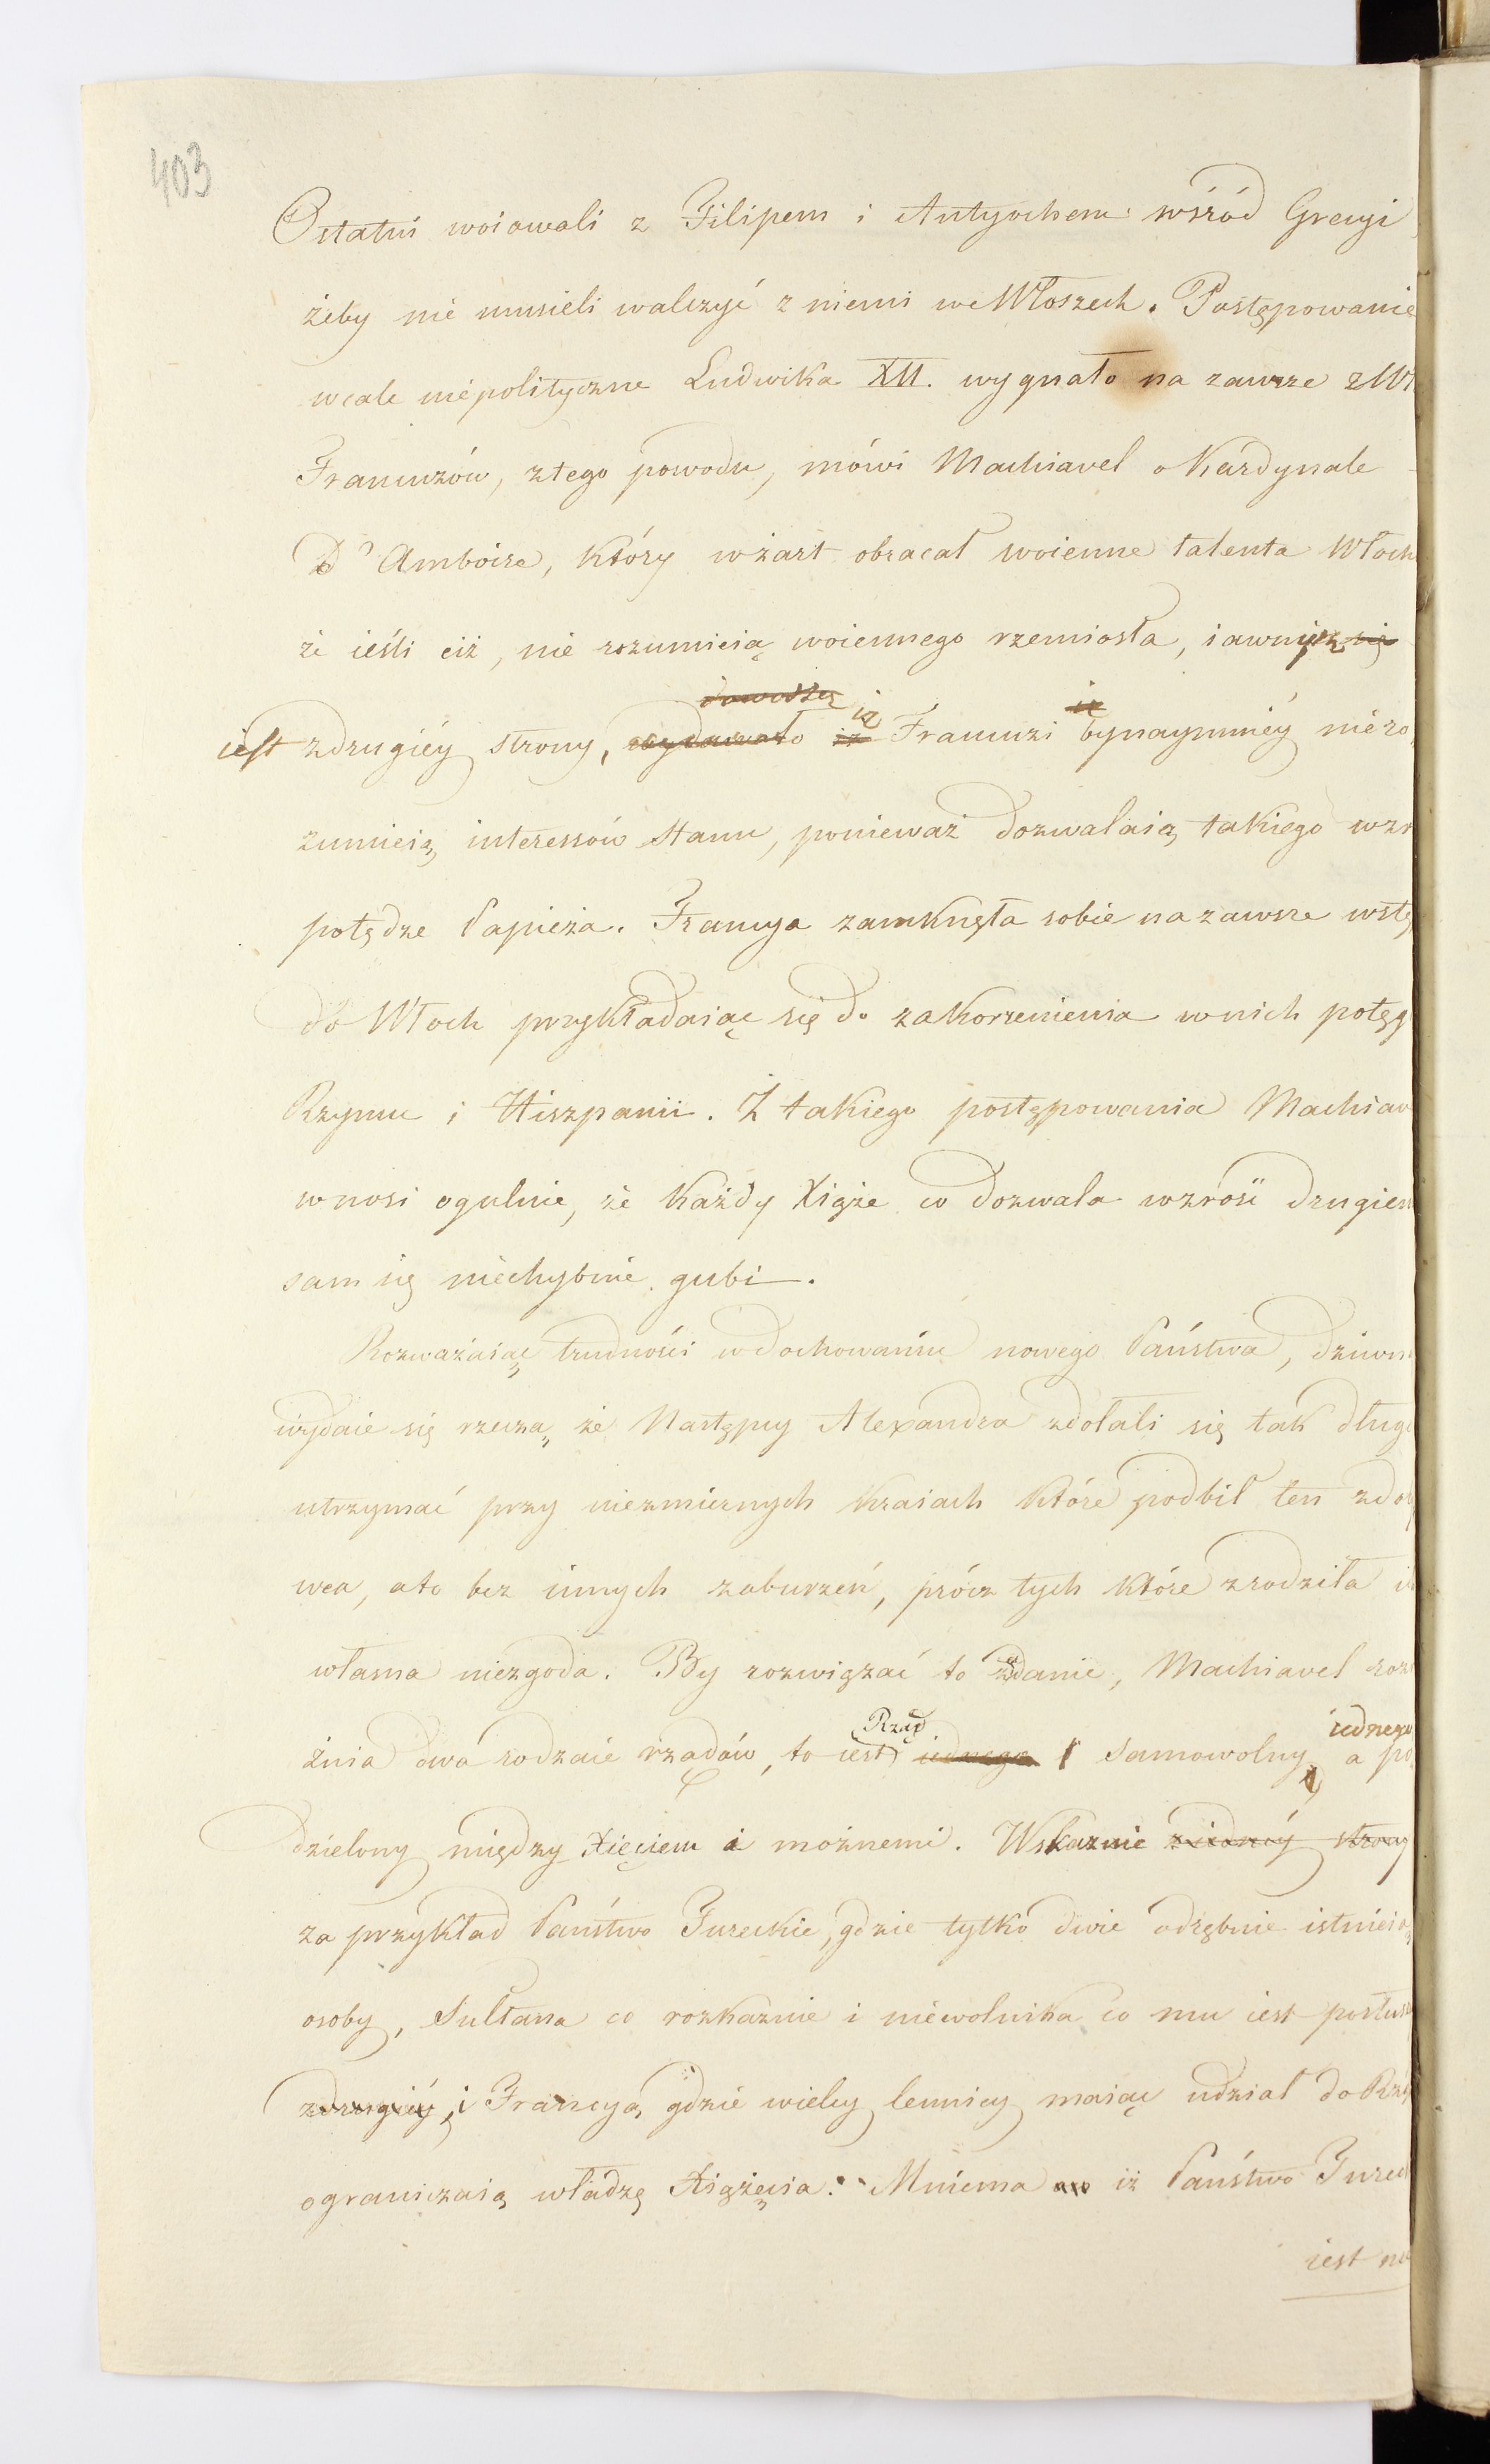 403
Ostatni woiowali z Filipem i Antyochem wśród Grecyi
żeby nie musieli walczyć z niemi we Włoszech. Postępowanie
wcale niepolityczne Ludwika XII. wygnało na zawsze z Wł
Francuzów, z tego powodu, mówi Machiavel o Kardynale
D'Amboise, który w żart obracał woienne talenta Włoch
że ieśli ciż, nie rozumieią woiennego rzemiosła, iawnym się
dowodzą iż się
iest z drugiéy strony, wydawało iż Francuzi bynaymniéy niero
zumieią interessów Stanu, ponieważ dozwalaią takiego wzr
potędze Papieża. Francya zamknęła sobie na zawsze wstę
do Włoch przykładaiąc się do zakorzenienia w nich potęg
Rzymu i Hiszpanii. Z takiego postępowania Machiav
wnosi ogulnie, że każdy Xiąże co dozwala wzrość drugiem
sam się niechybnie gubi.
Rozważaiąc trudności w dochowaniu nowego Państwa, dziwn
wydaie się rzeczą, że Następcy Alexandra zdołali się tak dług
utrzymać przy niezmiernych kraiach które podbił ten zdob
wca, a to bez innych zaburzeń, prócz tych które zrodziła i
własna niezgoda. By rozwiązać to zadanie, Machiavel roz
Rząd iednego
żnia dwa rodzaie rządów, to iest iednego samowolny, a po
dzielony między Xięciem i możnemi. Wskazuie z iednéy strony
za przykład Państwo Tureckie, gdzie tylko dwie odrębnie istnieią
osoby, Sułtana co rozkazuie i niewolnika co mu iest posłusz
z drugiéy, i Francyą, gdzie wielcy lennicy maiąc udział do Rzą
ograniczaią władzę Xiążęcia. Mniema iż Państwo Ture
iest na